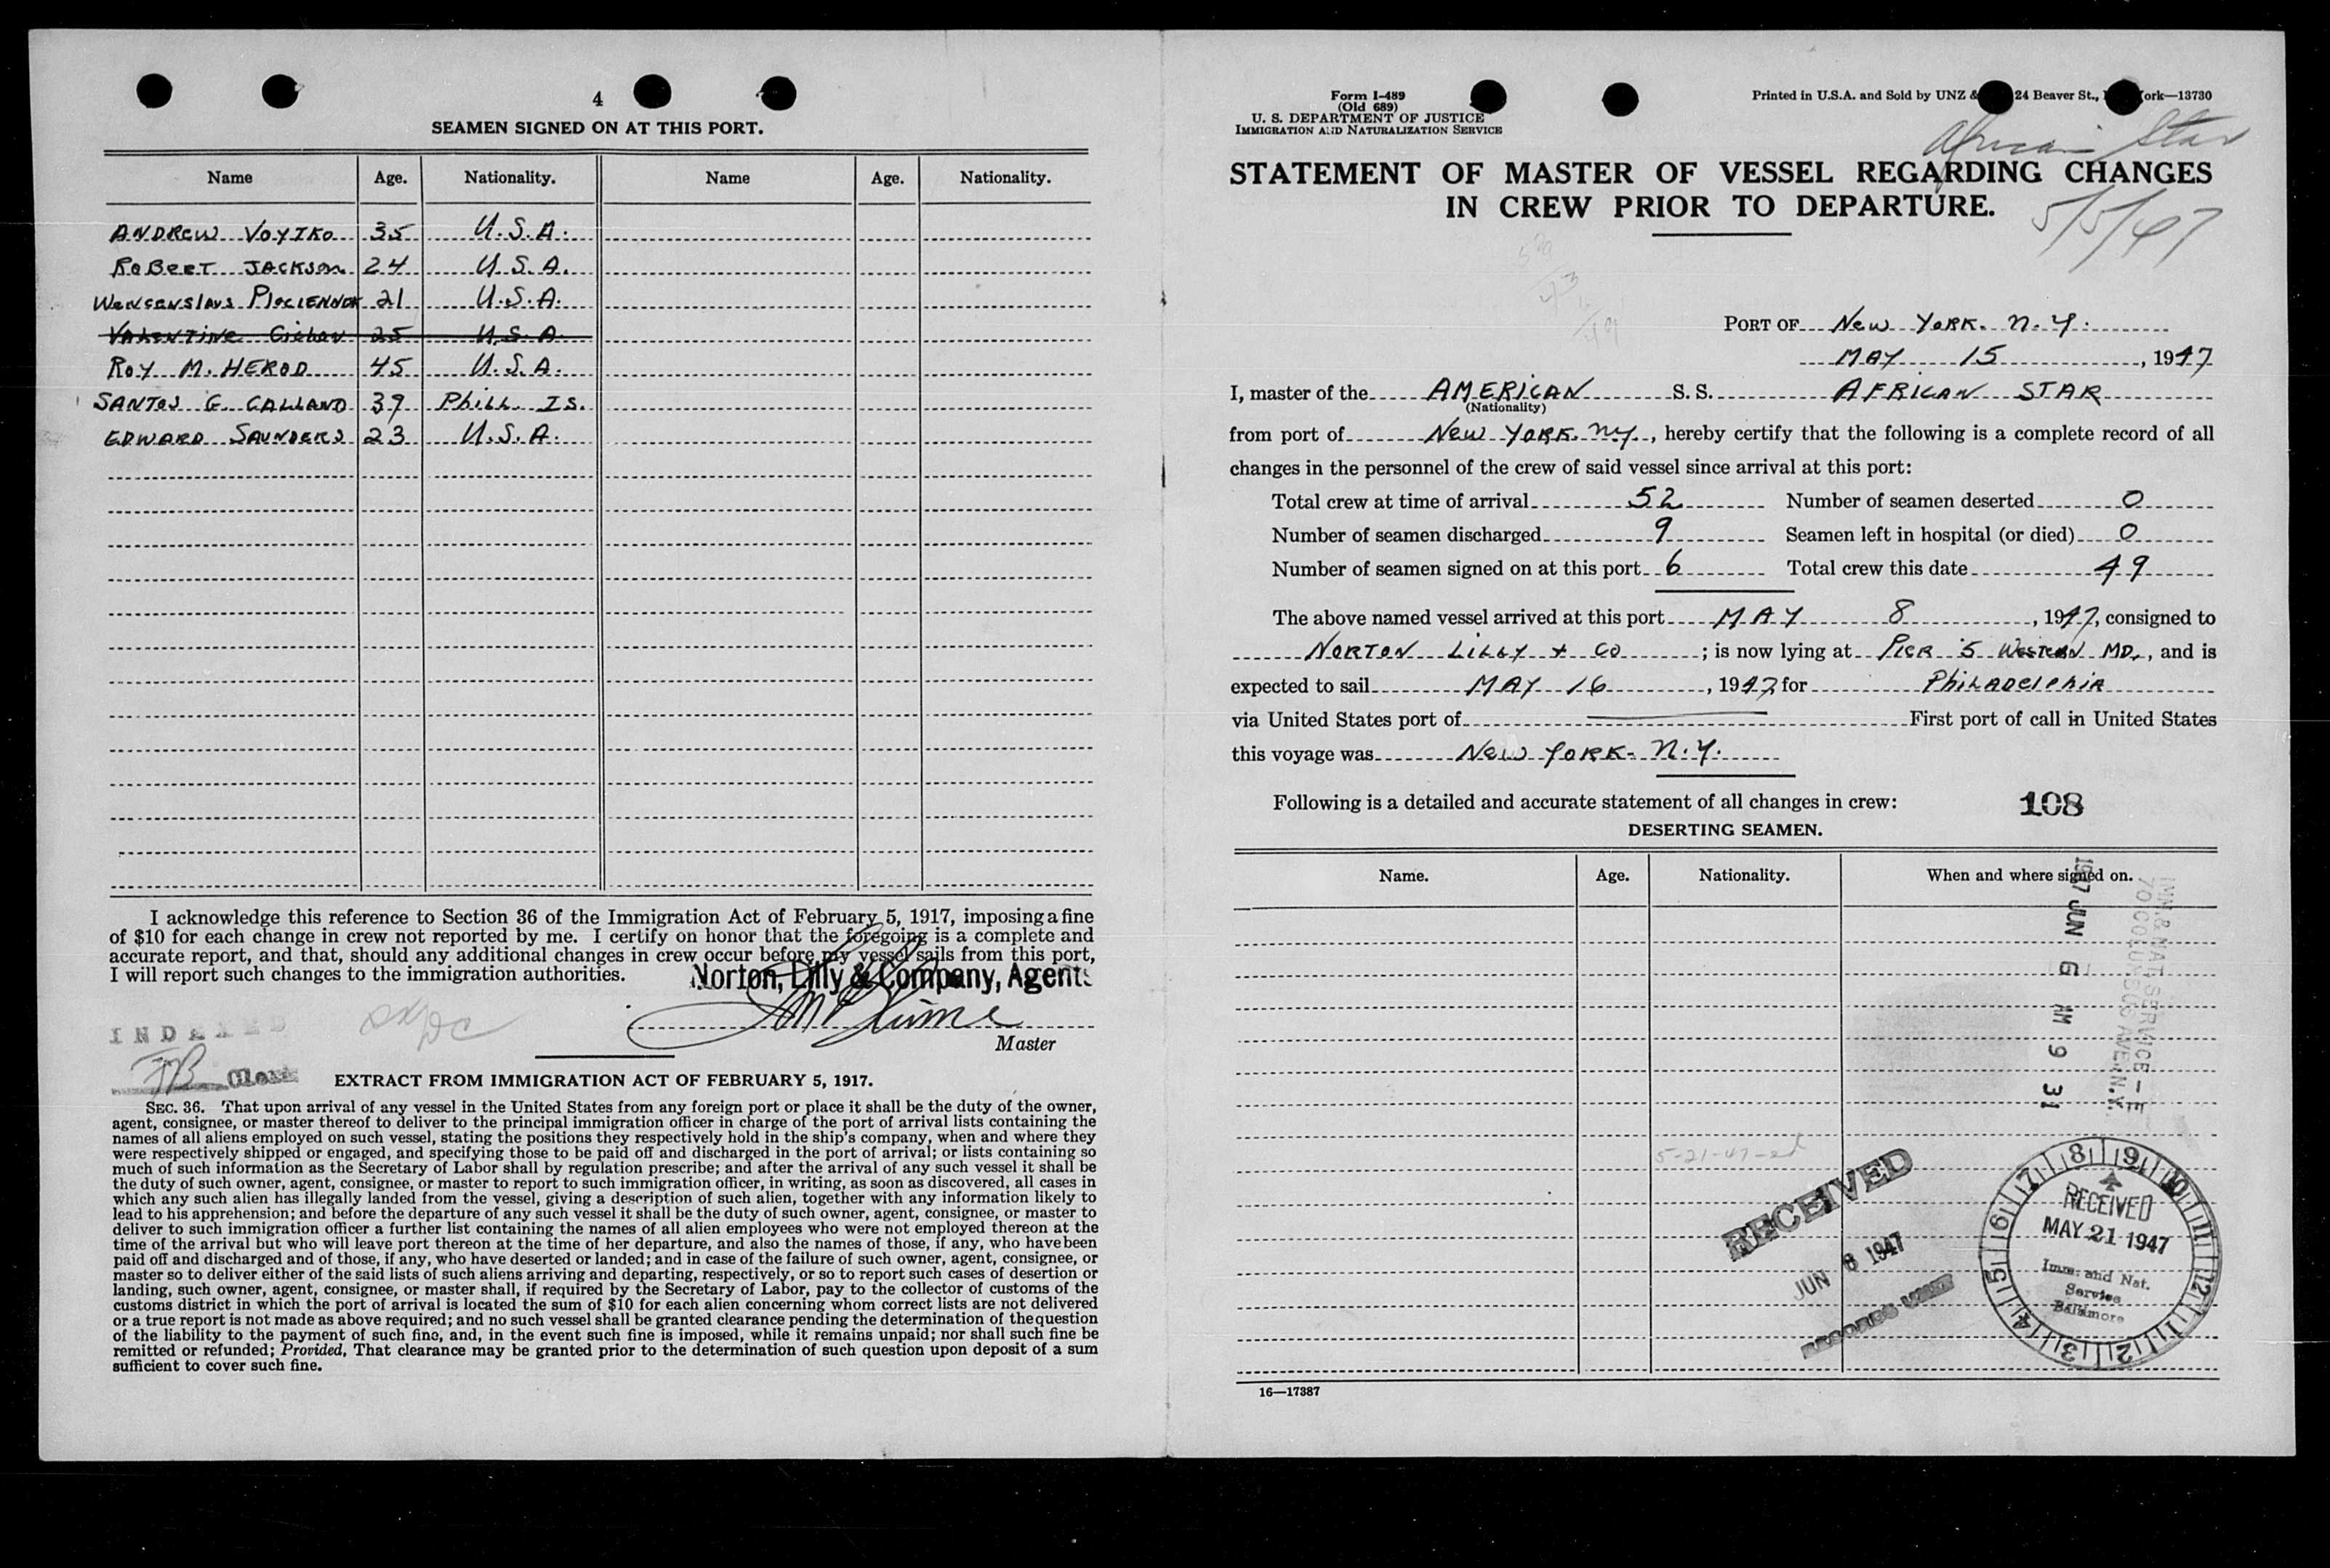 4
SEAMEN SIGNED ON AT THIS PORT.
Name Age. Nationality. Name Age. Nationality.
ANDREW VOYTKO 35 U.S.A.
ROBERT JACKSON 24 U.S.A.
21 U.S.A.
VALENTINE 25 U.S.A.
ROY M. HEROD 45 U.S.A.
SANTOS G. GALLAND 39 PHILL. IS.
EDWARD SAUNDERS 23 U.S.A.
I acknowledge this reference to Section 36 of the Immigration Act of February 5, 1917, imposing a fine
of $10 for each change in crew not reported by me. I certify on honor that the foregoing is a complete and
accurate report, and that, should any additional changes in crew occur before my vessel sails from this port,
I will report such changes to the immigration authorities.
Norton, Lilly & Company, Agents
Master
INDEXED
Clerk
EXTRACT FROM IMMIGRATION ACT OF FEBRUARY 5, 1917.
SEC. 36. That upon arrival of any vessel in the United States from any foreign port or place it shall be the duty of the owner,
agent, consignee, or master thereof to deliver to the principal immigration officer in charge of the port of arrival lists containing the
names of all aliens employed on such vessel, stating the positions they respectively hold in the ship's company, when and where they
were respectively shipped or engaged, and specifying those to be paid off and discharged in the port of arrival; or lists containing so
much of such information as the Secretary of Labor shall by regulation prescribe; and after the arrival of any such vessel it shall be
the duty of such owner, agent, consignee, or master to report to such immigration officer, in writing, as soon as discovered, all cases in
which any such alien has illegally landed from the vessel, giving a description of such alien, together with any information likely to
lead to his apprehension; and before the departure of any such vessel it shall be the duty of such owner, agent, consignee, or master to
deliver to such immigration officer a further list containing the names of all alien employees who were not employed thereon at the
time of the arrival but who will leave port thereon at the time of her departure, and also the names of those, if any, who have been
paid off and discharged and of those, if any, who have deserted or landed; and in case of the failure of such owner, agent, consignee, or
master so to deliver either of the said lists of such aliens arriving and departing, respectively, or so to report such cases of desertion or
landing, such owner, agent, consignee, or master shall, if required by the Secretary of Labor, pay to the collector of customs of the
customs district in which the port of arrival is located the sum of $10 for each alien concerning whom correct lists are not delivered
or a true report is not made as above required; and no such vessel shall be granted clearance pending the determination of the question
of the liability to the payment of such fine, and, in the event such fine is imposed, while it remains unpaid; nor shall such fine be
remitted or refunded; Provided, That clearance may be granted prior to the determination of such question upon deposit of a sum
sufficient to cover such fine.
Form I-489
(Old 689)
U. S. DEPARTMENT OF JUSTICE
IMMIGRATION AND NATURALIZATION SERVICE
Printed in U.S.A. and Sold by UNZ & 24 Beaver St., ork—13730
African Star
STATEMENT OF MASTER OF VESSEL REGARDING CHANGES
IN CREW PRIOR TO DEPARTURE.
5/5/47
PORT OF New York. N.Y.
MAY 15, 1947
I, master of the AMERICAN S. S. AFRICAN STAR
(Nationality)
from port of New York. N.Y., hereby certify that the following is a complete record of all
changes in the personnel of the crew of said vessel since arrival at this port:
Total crew at time of arrival 52 Number of seamen deserted 0
Number of seamen discharged 9 Seamen left in hospital (or died) 0
Number of seamen signed on at this port 6 Total crew this date 49
The above named vessel arrived at this port MAY 8, 1947, consigned to
NORTON LILLY + CO; is now lying at PIER 5 WESTERN MD., and is
expected to sail MAY 16, 1947 for PHILADELPHIA
via United States port of First port of call in United States
this voyage was New York. N.Y.
Following is a detailed and accurate statement of all changes in crew: 108
DESERTING SEAMEN.
Name. Age. Nationality. When and where signed on.
1947 JUN 6 AM 9 31
IMM. & NAT. SERVICE
70 COLUMBUS AVE. N.Y.
5-21-47
RECEIVED
JUN 6 1947
RECORDS UNIT
RECEIVED
MAY 21 1947
Imm. and Nat.
Service
Baltimore
1 2 3 4 5 6 7 8 9 10 11 12
16—17387